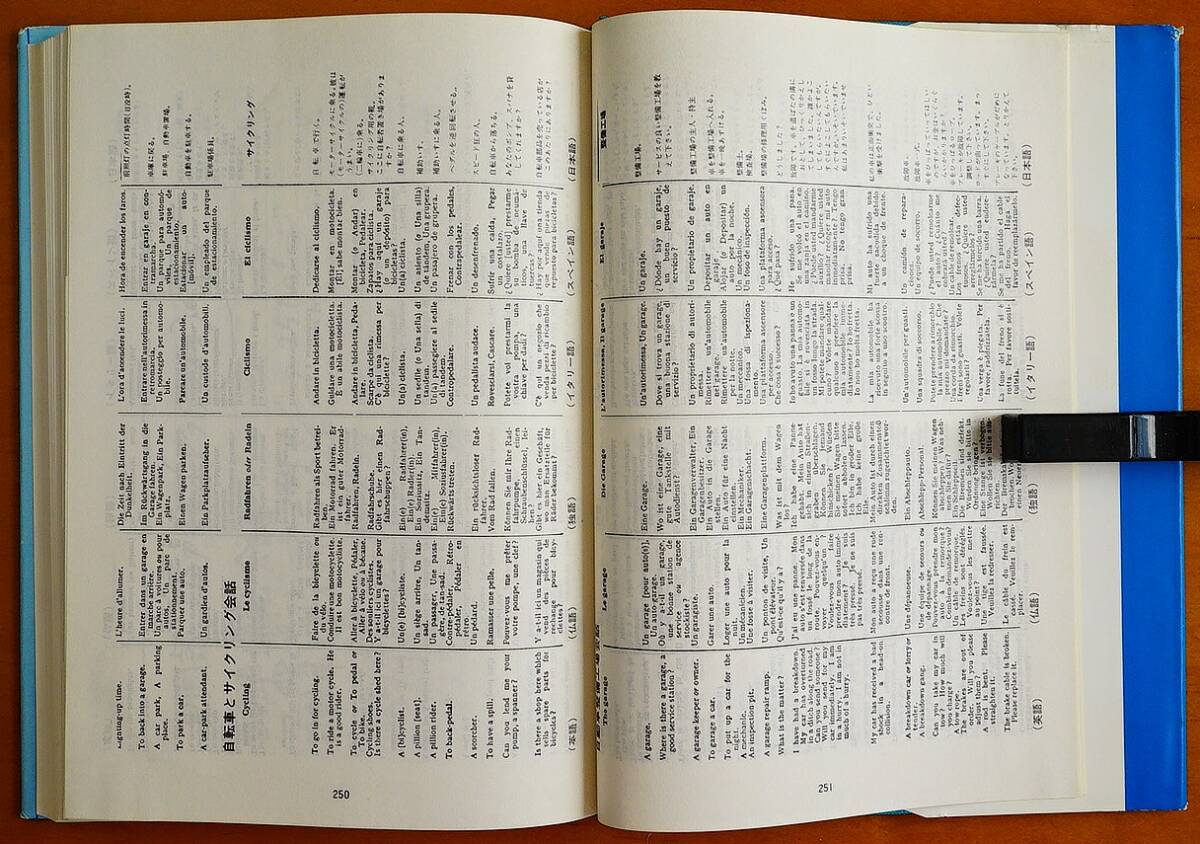 Lighting-up time.
To back into a garage.
A car park, A parking
place.
To park a car.
A car-park attendant.
自転車とサイクリング会話
Cycling
To go in for cycling.
To ride a motor cycle. He
is a good rider.
To cycle or To pedal or
To bike.
Cycling shoes.
Is there a cycle shed here?
A [bi]cyclist.
A pillion (seat).
A pillion rider.
To back-pedal.
A scorcher.
To have a spill.
Can you lend me your
pump, a spanner?
Is there a shop here which
sells spare parts for
bicycles?
(英語)
L'heure d'allumer.
Entrer dans un garage en
marche arrière.
Un parc à voitures ou pour
autos, Un parc de
stationnement.
Parquer une auto.
Un gardien d'autos.
Le cyclisme
Faire de la bicyclette ou
du vélo.
Conduire une motocyclette.
Il est bon motocycliste.
Aller à bicyclette, Pédaler,
Aller à vélo ou à bécane.
Des souliers cyclistes.
Y a-t-il un garage pour
bicyclettes?
Un(e) [bi]cycliste.
Un siège arrière, Un tan-
sad.
Un passager, Une passa-
gère, de tan-sad.
Contre-pédaler, Rétro-
pédaler, Pédaler en
arrière.
Un pédard.
Ramasser une pelle.
Pouvez-vous me prêter
votre pompe, une clef?
Y a-t-il ici un magasin qui
vend des pièces de
rechange pour bicy-
clettes?
(仏語)
Die Zeit nach Eintritt der
Dunkelheit.
Im Rückwärtsgang in die
Garage fahren.
Ein Wagenpark, Ein Park-
platz.
Einen Wagen parken.
Ein Parkplatzaufseher.
Radfahren oder Radeln
Radfahren als Sport betrei-
ben.
Ein Motorrad fahren. Er
ist ein guter Motorrad-
fahrer.
Radfahren, Radeln.
Radfahrschuhe.
Gibt es hier einen Rad-
fahrschuppen?
Ein(e) Radfahrer(in),
Ein(e) Radler(in).
Ein Soziussitz, Ein Tan-
demsitz.
Ein(e) Mitfahrer(in),
Ein(e) Soziusfahrer(in).
Rückwärts treten.
Ein rücksichtloser Rad-
fahrer.
Vom Rad fallen.
Können Sie mir Ihre Rad-
fahrpumpe, einen
Schraubenschlüssel, lei-
hen?
Gibt es hier ein Geschäft,
wo man Ersatzteile für
Räder bekommt?
(独語)
L'ora d'accendere le luci.
Entrare nell'autorimessa in
retromarcia.
Un posteggio per automo-
bile.
Parcare un'automobile.
Un custode d'automobili.
Ciclismo
Andare in bicicletta.
Guidare una motocicletta.
È un abile motociclista.
Andare in bicicletta, Peda-
lare.
Scarpe da ciclista.
C'è qui una rimessa per
biciclette?
Un(a) ciclista.
Un sedile (o Una sella) di
tandem.
Un passeggiere al sedile
di tandem.
Contropedalare.
Un pedalista audace.
Rovesciarsi, Cascare.
Potete voi prestarmi la
vostra pompa, una
chiave per dadi?
C'è qui un negozio che
venda pezzi di ricambio
per biciclette?
(イタリー語)
Hora de encender los faros.
Entrar en garaje en con-
tramarcha.
Un parque para automó-
viles, Un parque de
estacionamiento.
Estacionar un auto-
[móvil].
Un empleado del parque
de estacionamiento.
El ciclismo
Dedicarse al ciclismo.
Montar en motocicleta.
[Él] sabe montar bien.
Montar (o Andar) en
bicicleta, Pedalear.
Zapatos para ciclista.
¿Hay aquí un garaje
(o un depósito) para
bicicletas?
Un(a) ciclista.
Un asiento (o Un(a) silla)
de tándem, Una grupera.
Un pasajero de grupera.
Frenar con los pedales,
Contrapedalear.
Un desenfrenado.
Sufrir una caída, Pegar
un costalazo.
¿Quiere [usted] prestarme
su bomba de neumáti-
cos, una llave de
tuercas?
¿Hay por aquí una tienda
que vende piezas de
repuesto para bicicletas?
(スペイン語)
前照灯の点灯時間(日没時)。
車庫に戻る。
駐車場 自動車置場。
自動車を駐車する。
駐車場係員。
サイクリング
自転車で行く。
モーターサイクルに乗る。彼は
(モーターサイクルの)運転が
うまい。
(二輪車に)乗る。
サイクリング用の靴。
ここに自転車置き場がありま
すか?
自転車に乗る人。
補助いす。
補助いすに乗る人。
ペダルを逆回転させる。
スピード狂の人。
自転車から落ちる。
あなたのポンプ、スパナを貸
してくれますか?
自転車部品を売っている店が
このあたりにありますか?
(日本語)
250
The garage
A garage.
Where is there a garage, a
good service station?
A garage keeper or owner.
To garage a car.
To put up a car for the
night.
A mechanic.
An inspection pit.
A garage repair ramp.
What is the matter?
I have had a breakdown.
My car has overturned
in a ditch along the road.
Can you send someone?
Will you send for my
car immediately. I am
in a hurry. I am not in
much of a hurry.
My car has received a bad
shock in a head-on
collision.
A breakdown car or lorry or
tender.
A breakdown gang.
Can you take my car in
tow? How much will
you charge?
A tow rope.
The brakes are out of
order. Will you please
adjust them?
A rod is bent. Please
straighten it.
The brake cable is broken.
Please replace it.
(英語)
Le garage
Un garage [pour auto(s)],
Un auto-garage.
Où y a-t-il un garage,
une bonne station de
service ou agence
stockiste?
Un garagiste.
Garer une auto.
Loger une auto pour la
nuit.
Un mécanicien.
Une fosse à visiter.
Un ponton de visite, Un
pont élévateur.
Qu'est-ce qu'il y a?
J'ai eu une panne. Mon
auto s'est renversée dans
un fossé le long de la
route. Pouvez-vous en-
voyer quelqu'un?
Voulez-vous faire
prendre mon auto immé-
diatement? Je suis
très pressé. Je ne suis
pas très pressé.
Mon auto a reçu une rude
secousse dans une ren-
contre de front.
Une dépanneuse.
Une équipe de secours ou
de dépannage.
Pouvez-vous prendre mon
auto à la remorque?
Combien demandez-vous?
Un câble de remorque.
Les freins sont déréglés.
Voulez-vous les mettre
au point?
Une tige est faussée.
Veuillez la redresser.
Le câble du frein est
cassé. Veuillez le rem-
placer.
(仏語)
Die Garage
Eine Garage.
Wo ist eine Garage, eine
gute Tankstelle mit
Autodienst?
Ein Garagenverwalter, Ein
Garagenbesitzer.
Ein Auto in die Garage
stellen.
Ein Auto für eine Nacht
einstellen.
Ein Mechaniker.
Ein Garagenschacht.
Eine Garagenplattform.
Was ist mit dem Wagen
los?
Ich habe eine Panne
gehabt. Mein Auto hat
sich in einem Straßen-
graben überschlagen.
Können Sie jemand
schicken? Würden
Sie meinen Wagen bitte
sofort abholen lassen.
Ich bin in großer Eile.
Ich habe keine große
Eile.
Mein Auto ist durch einen
direkten Zusammenstoß
schlimm zugerichtet wor-
den.
Ein Abschleppauto.
Abschlepp-Personal.
Können Sie meinen Wagen
abschleppen? Was neh-
men Sie dafür?
Ein Schleppseil.
Die Bremsen sind defekt.
Würden Sie sie bitte in
Ordnung bringen?
Eine Stange ist verbogen.
Wollen Sie sie bitte
(独語)
L'autorimessa, Il garage
Un'autorimessa, Un garage.
Dove si trova un garage,
una buona stazione di
servizio?
Un proprietario di autori-
messa.
Rimettere un'automobile
nel garage.
Rimettere un'automobile
per la notte.
Un meccanico.
Una fossa di ispeziona-
mento.
Una piattaforma ascensore
per accesso.
Che cosa è successo?
Io ho avuto una panna o un
guasto. La mia automo-
bile si è rovesciata in
un fosso lungo la strada.
Mi potete mandare qual-
cuno? Volete mandare
qualcuno a prendere la
mia automobile imme-
diatamente? Io ho fretta.
Io non ho molta fretta.
La mia automobile ha
ricevuto una forte scossa
in seguito a uno scontro.
Un'automobile per guasti.
Una squadra di soccorso.
Potete prendere a rimorchio
la mia automobile? Che
prezzo domandate?
Una corda da rimorchio.
I freni sono guasti. Volete
regolarli?
Una verga è piegata. Per
favore, raddrizzatela.
La fune del freno si è
rotta. Per favore sosti-
tuitela.
(イタリー語)
El garaje
Un garaje.
¿Dónde hay un garaje,
un buen puesto de
servicio?
Un propietario de garaje.
Depositar un auto en
garaje.
Alojar (o Depositar) un
auto por la noche.
Un mecánico.
Un foso de inspección.
Una plataforma ascensora
de acceso.
¿Qué pasa?
He sufrido una pana.
Se me volcó el auto en
una zanja en el camino.
¿Puede usted mandarme
auxilio? ¿Quiere usted
mandar recoger mi auto
inmediatamente? Tengo
prisa. No tengo gran
prisa.
Mi auto ha sufrido una
fuerte sacudida debido
a un choque de frente.
Un camión de repara-
ciones.
Un equipo de socorro.
¿Puede usted remolcarme
el auto? ¿Cuánto me
cobrará usted?
Un cable de remolque.
Los frenos están descom-
puestos. ¿Quiere usted
arreglarlos?
Se me ha torcido una barra.
¿Quiere usted endere-
zármela?
Se me ha partido el cable
del freno. Haga el
favor de reemplazármelo.
(スペイン語)
整備工場
整備工場。
サービスの良い整備工場を教
えて下さい。
整備工場の主人・持主
車を整備工場へ入れる。
車を一晩あずける。
整備士。
検査場。
整備場の修理用くぼみ。
どうしました?
故障車。
(日本語)
251